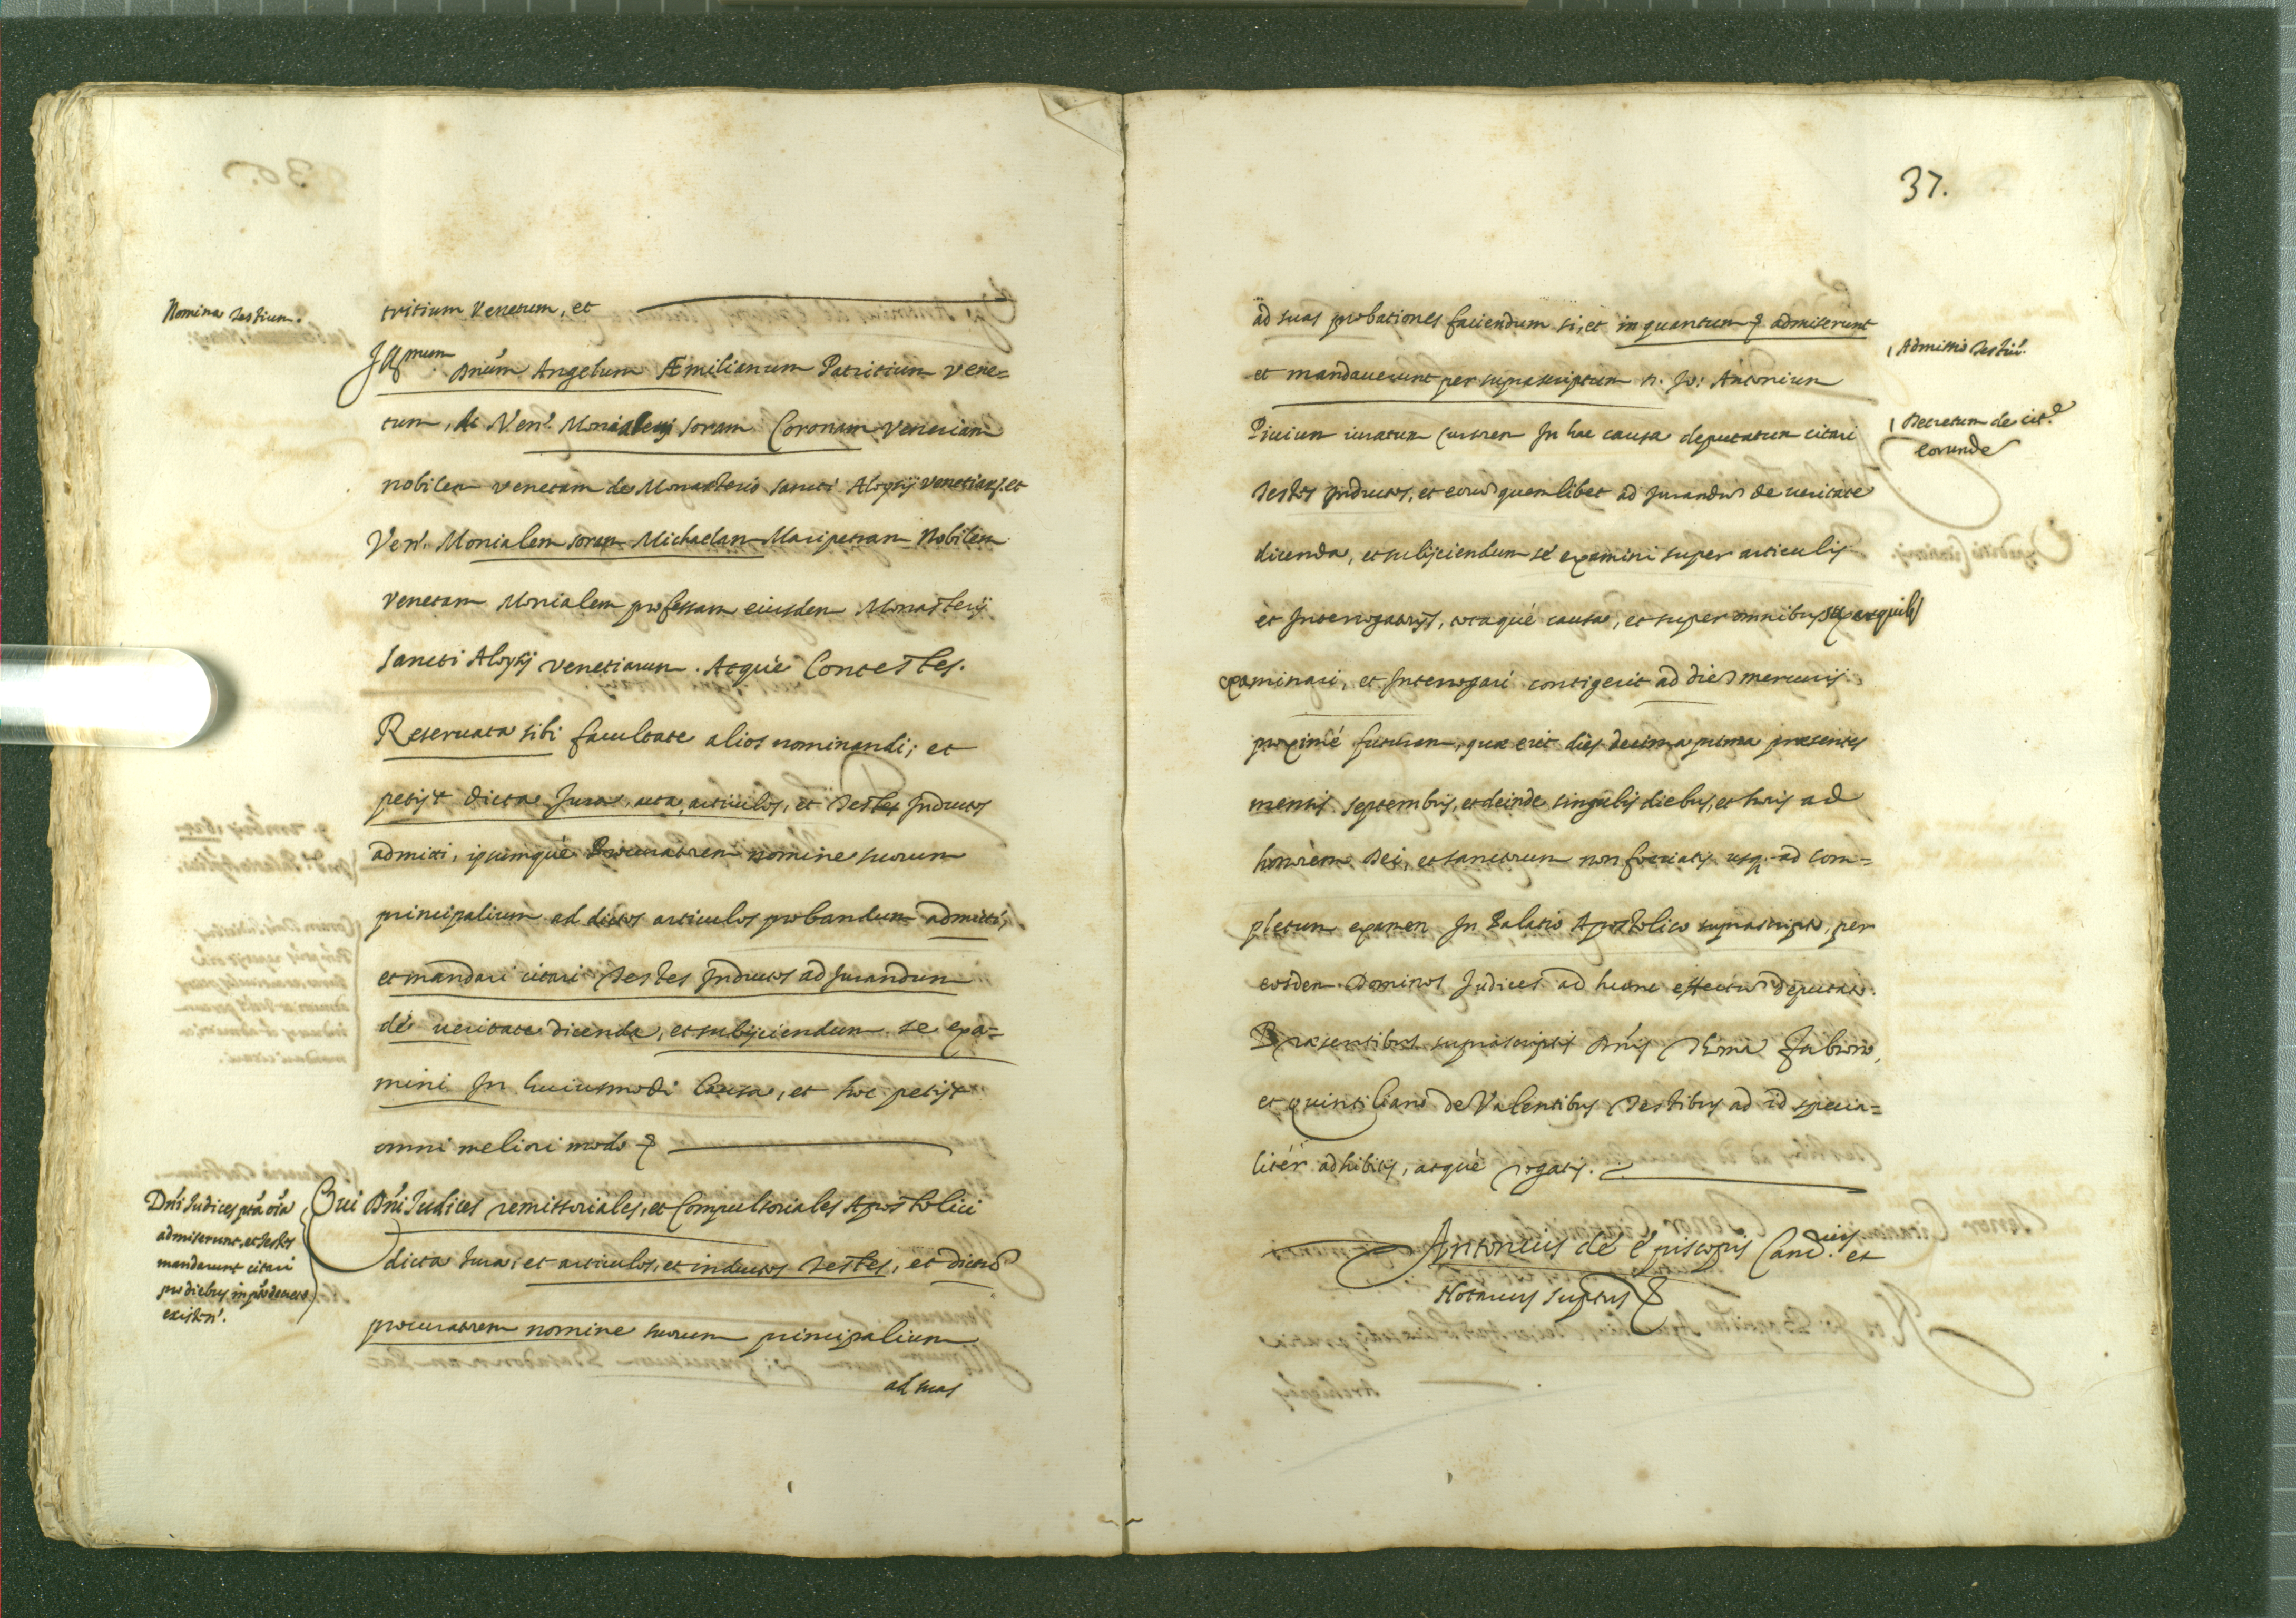 Nomina Testium.
tritium Venetum, et
Ill.mum Dnum Angelum Æmilianum Patritium Vene=
tum, ac Ven. Monialem Soram Coronam Veneriam
nobilem venetam de Monasterio Sancti Aloysij Venetiarum, et
Ven. Monialem Soram Michaelam Maripetram Nobilem
Venetam Monialem professam eiusdem Monasterij
Sancti Aloysij Venetiarum. Atque Contestes.
Reseruata sibi facultate alios nominandi; et
petijt dicta Jura, acta, articulos, et Testes Inductos
admitti, ipsumque Procuratorem nomine suorum
principalium ad dictos articulos probandum admitti,
et mandari citari Testes Inductos ad Jurandum
de veritate dicenda, et subijciendum se exa=
mini In huiusmodi Causa, et hoc petijt
omni meliori modo &
Dni Judices pta ora
admiserunt, et Testes
mandarunt citari
pro diebus in pto decreto
existen.
Qui Dni Judices remissoriales, et Compulsoriales Apostolici
dicta Jura, et articulos, et inductos Testes, et dictum
procuratorem nomine suorum principalium
ad suas
37.
ad suas probationes faciendum si, et in quantum & admiserunt
Admissio Testiu.
et mandauerunt per suprascriptum D. Jo: Antonium
Piuium iuratum Cursorem In hac causa deputatum citari
Decretum de cit.e
eorunde
Testes Inductos, et eorum quemlibet ad Jurandum de veritate
dicenda, et subijciendum se examini super articulis
et Interrogatorijs, totaque causa, et super omnibus
examinari, et Interrogari contigerit ad diem mercurij
proximé futuram, quæ erit dies decima prima præsentis
mensis septembris, et deinde singulis diebus, et horis ad
honorem Dei, et sanctorum non foeriatis usq. ad com=
pletum examen In Palatio Apostolico suprascripto, per
eosdem Dominos Judices ad hunc effectum deputato.
Præsentibus suprascriptis Dnis Thoma Fabrono,
et Quintiliano de Valentibus Testibus ad id specia=
litér adhibitis, atqué rogatis.
Antonius de Episcopis Canc.rius et
Notarius Suptus &